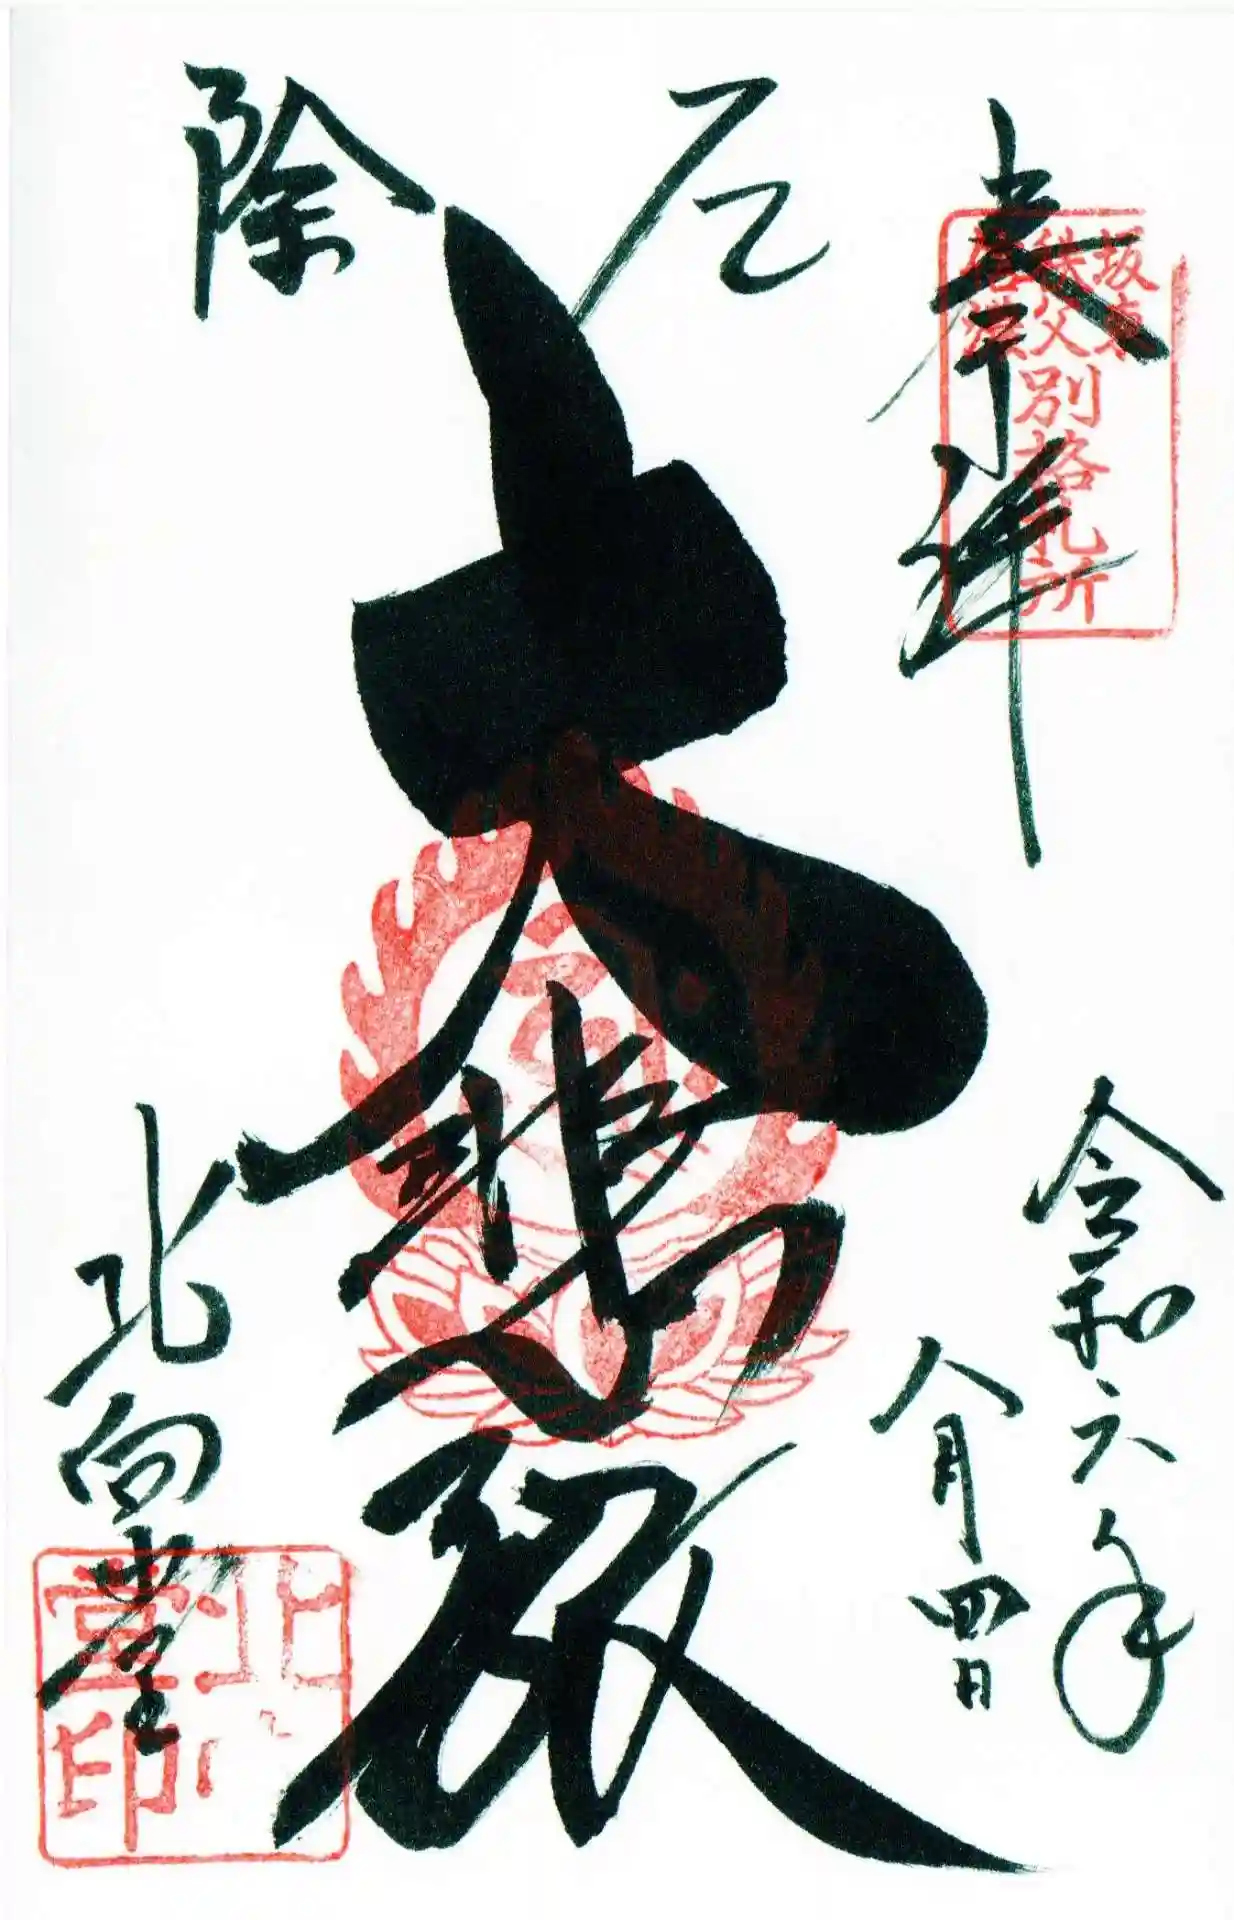 奉拝
坂東
秩父
信濃
別格札所
厄
除
大悲殿
令和六年
八月四日
北向堂
北
堂印